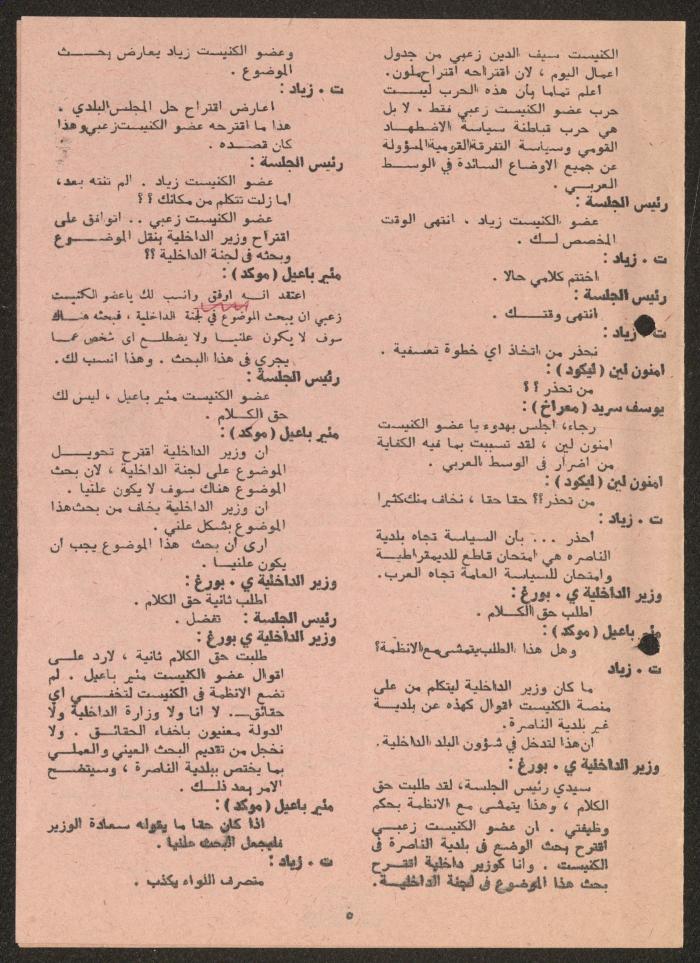 الكنيست سيف الدين زعبي من جدول
اعمال اليوم ، لان اقتراحه اقتراح ملون.
اعلم تماما بأن هذه الحرب ليست
حرب عضو الكنيست زعبي فقط ، لا بل
هي حرب قباطنة سياسة الاضطهاد
القومي وسياسة التفرقة القومية المسؤولة
عن جميع الاوضاع السائدة في الوسط
العربي .
رئيس الجلسة :
عضو الكنيست زياد . انتهى الوقت
المخصص لك .
ت . زياد :
اختتم كلامي حالا .
رئيس الجلسة :
انتهى وقتك .
ت . زياد :
نحذر من اتخاذ اي خطوة تعسفية .
امنون لين ( ليكود ) :
من تحذر ؟؟
يوسف سريد ( معراخ ) :
رجاء، اجلس بهدوء يا عضو الكنيست
امنون لين ، لقد تسببت بما فيه الكفاية
من اضرار في الوسط العربي .
امنون لين ( ليكود ) :
من تحذر؟؟ حقا حقا ، نخاف منك كثيرا
ت . زياد :
احذر ... بأن السياسة تجاه بلدية
الناصره هي امتحان قاطع للديمقراطية
وامتحان للسياسة العامة تجاه العرب.
وزير الداخلية ي . بورغ :
اطلب حق الكلام .
مئير باعيل ( موكد ) :
وهل هذا الطلب يتمشى مع الانظمة؟
ت . زياد
ما كان وزير الداخلية ليتكلم من على
منصة الكنيست اقوال كهذه عن بلدية
غير بلدية الناصرة .
ان هذا لتدخل في شؤون البلد الداخلية.
وزير الداخلية ي . بورغ :
سيدي رئيس الجلسة، لقد طلبت حق
الكلام ، وهذا يتمشى مع الانظمة بحكم
وظيفتي . ان عضو الكنيست زعبي
اقترح بحث الوضع في بلدية الناصرة في
الكنيست . وانا كوزير داخلية اقترح
بحث هذا الموضوع في لجنة الداخلية.
وعضو الكنيست زياد يعارض بحث
الموضوع .
ت . زياد :
اعارض اقتراح حل المجلس البلدي .
هذا ما اقترحه عضو الكنيست زعبي وهذا
كان قصده .
رئيس الجلسة :
عضو الكنيست زياد . الم تنته بعد،
اما زلت تتكلم من مكانك ؟؟
عضو الكنيست زعبي .. اتوافق على
اقتراح وزير الداخلية بنقل الموضوع
وبحثه في لجنة الداخلية ؟؟
مئير باعيل ( موكد ) :
اعتقد انه اوفق وانسب لك يا عضو الكنيست
زعبي ان يبحث الموضوع في لجنة الداخلية ، فبحثه هناك
سوف لا يكون علنيا ولا يضطلع اى شخص عما
يجري في هذا البحث . وهذا انسب لك.
رئيس الجلسة :
عضو الكنيست مئير باعيل ، ليس لك
حق الكلام .
مئير باعيل ( موكد ) :
ان وزير الداخلية اقترح تحويل
الموضوع على لجنة الداخلية ، لان بحث
الموضوع هناك سوف لا يكون علنيا .
ان وزير الداخلية يخاف من بحث هذا
الموضوع بشكل علني .
ارى ان بحث هذا الموضوع يجب ان
يكون علنيا .
وزير الداخلية ي . بورغ :
اطلب ثانية حق الكلام .
رئيس الجلسة : تفضل .
وزير الداخلية ي بورغ :
طلبت حق الكلام ثانية ، لارد على
اقوال عضو الكنيست مئير باعيل . لم
تضع الانظمة في الكنيست لتخفي اي
حقائق . لا انا ولا وزارة الداخلية ولا
الدولة معنيون باخفاء الحقائق . ولا
نخجل من تقديم البحث العيني والعملي
بما يختص ببلدية الناصرة ، وسيتضح
الامر بعد ذلك .
مئير باعيل ( موكد ) :
اذا كان حقا ما يقوله سعادة الوزير
فليجعل البحث علنيا .
ت . زياد :
متصرف اللواء يكذب .
٥